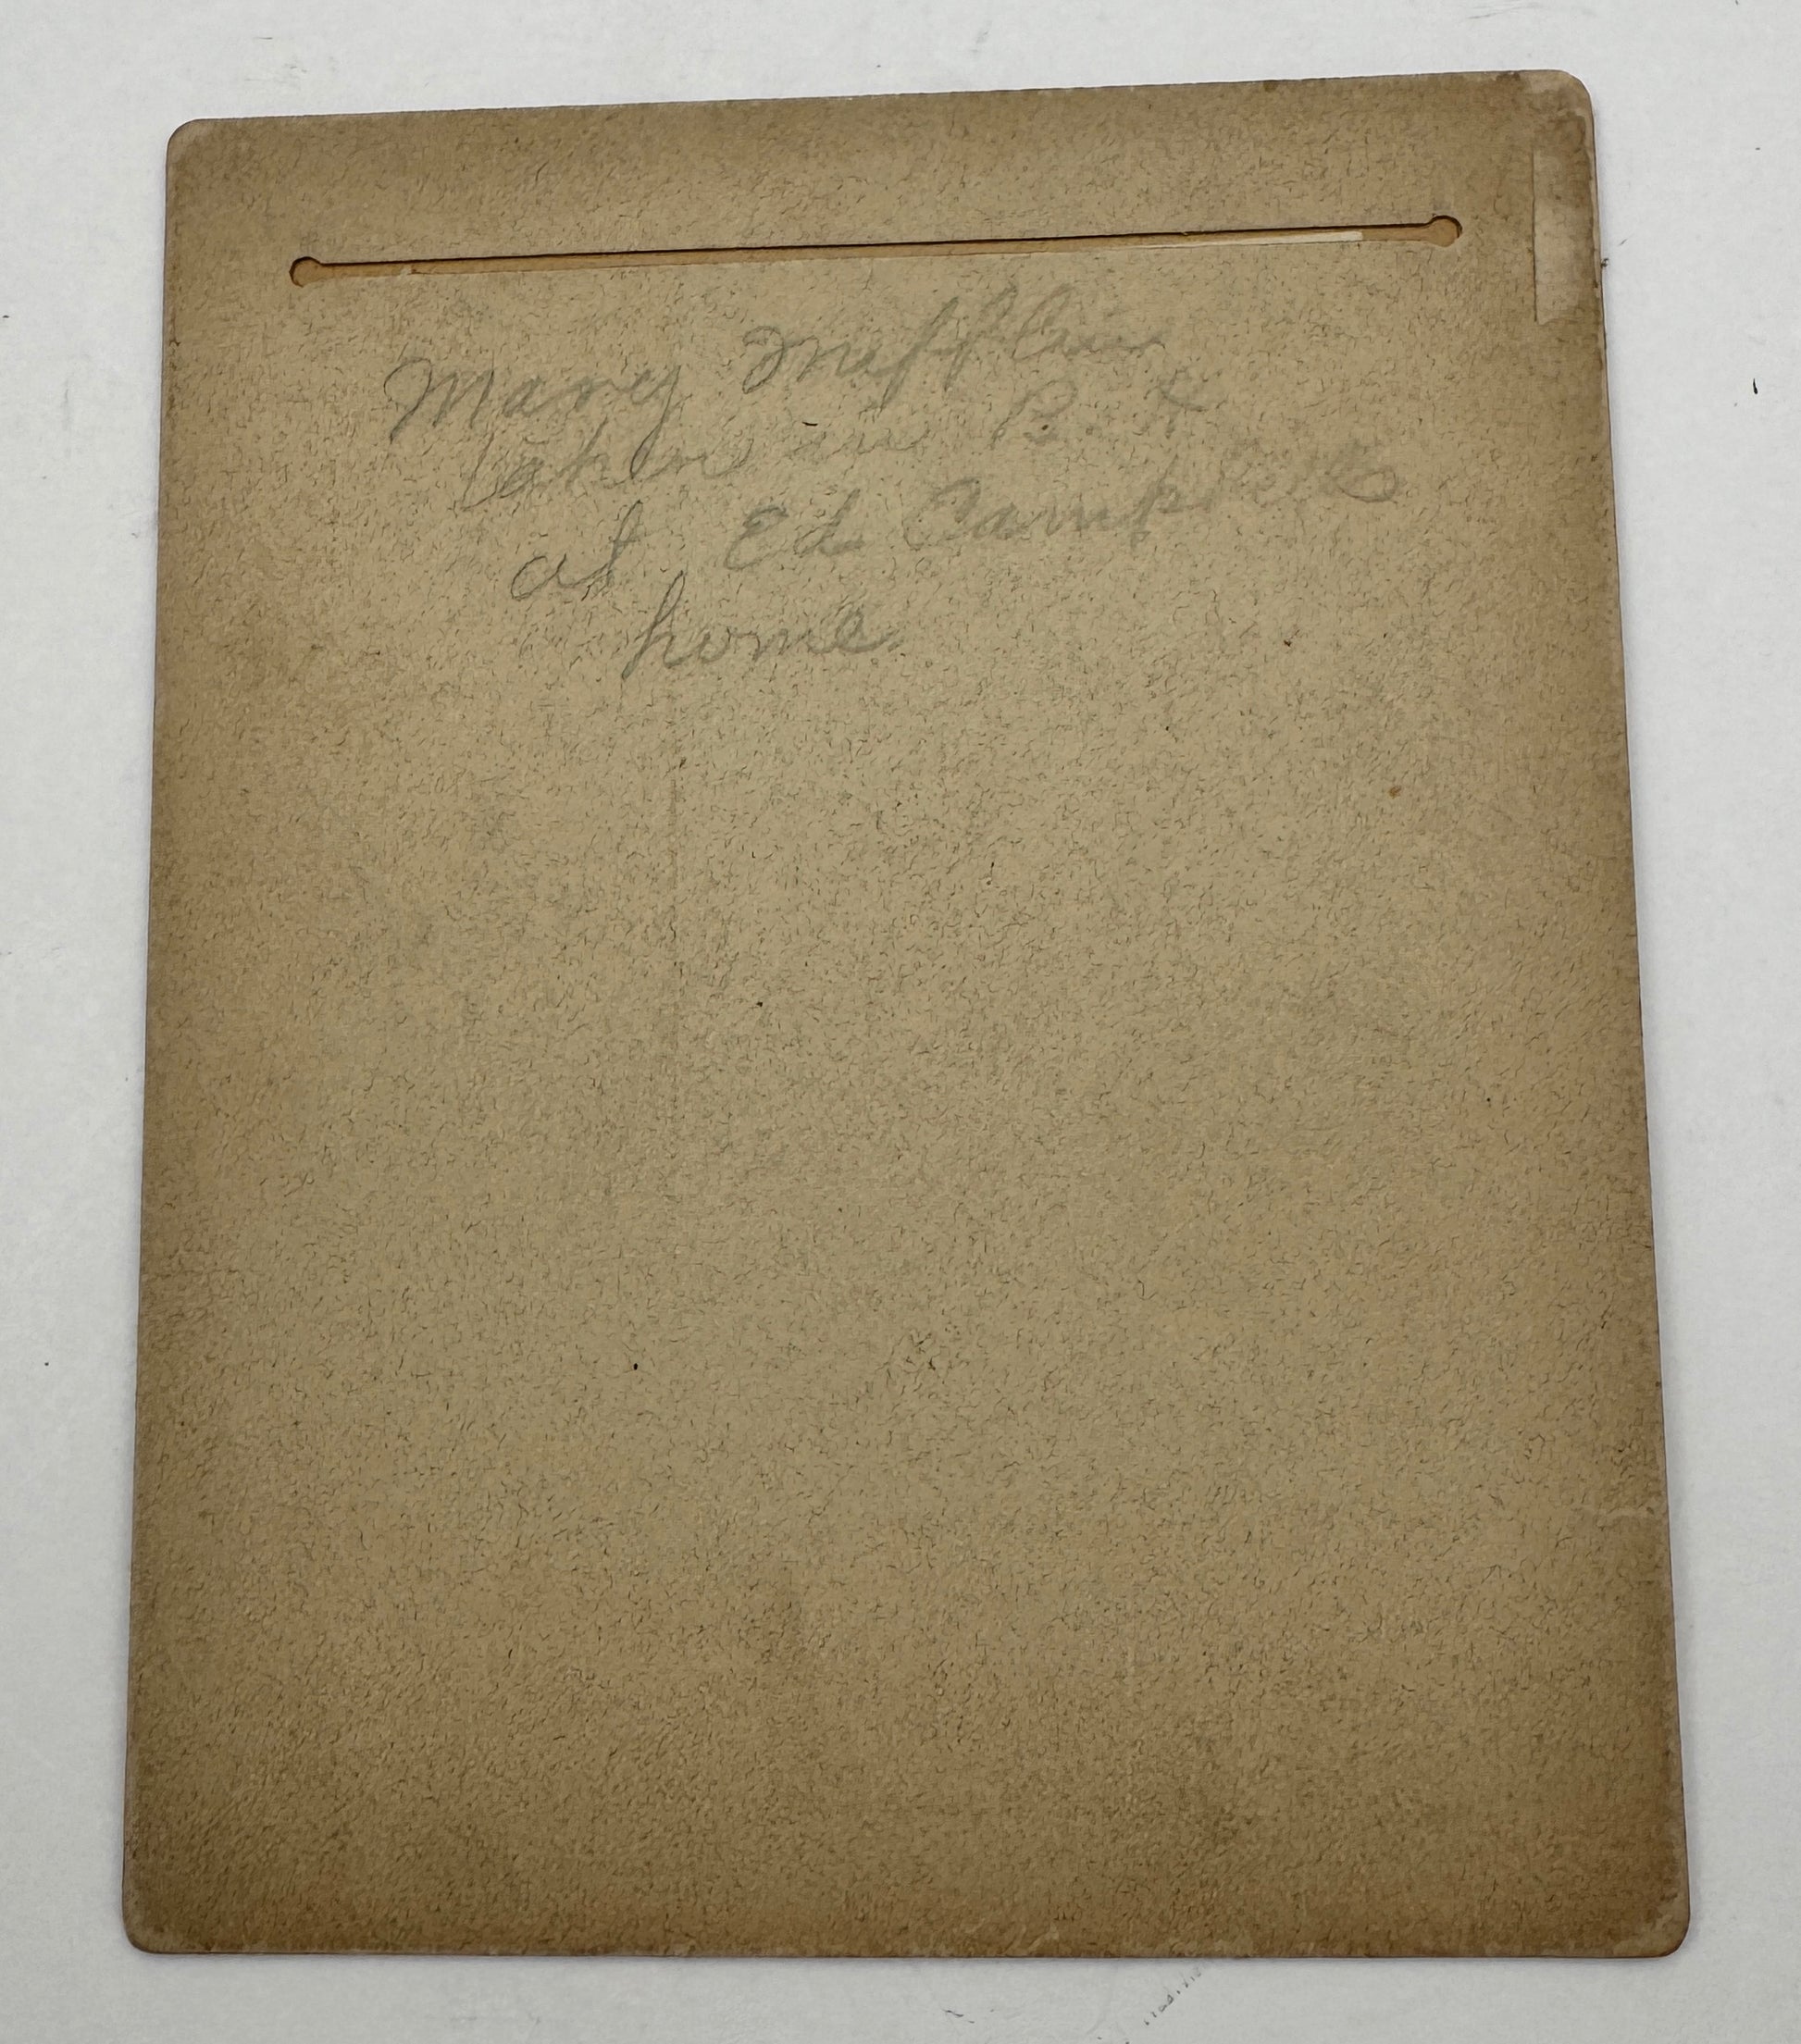 Mary Mefflin
taken in B. X
at Ed Campbells
home